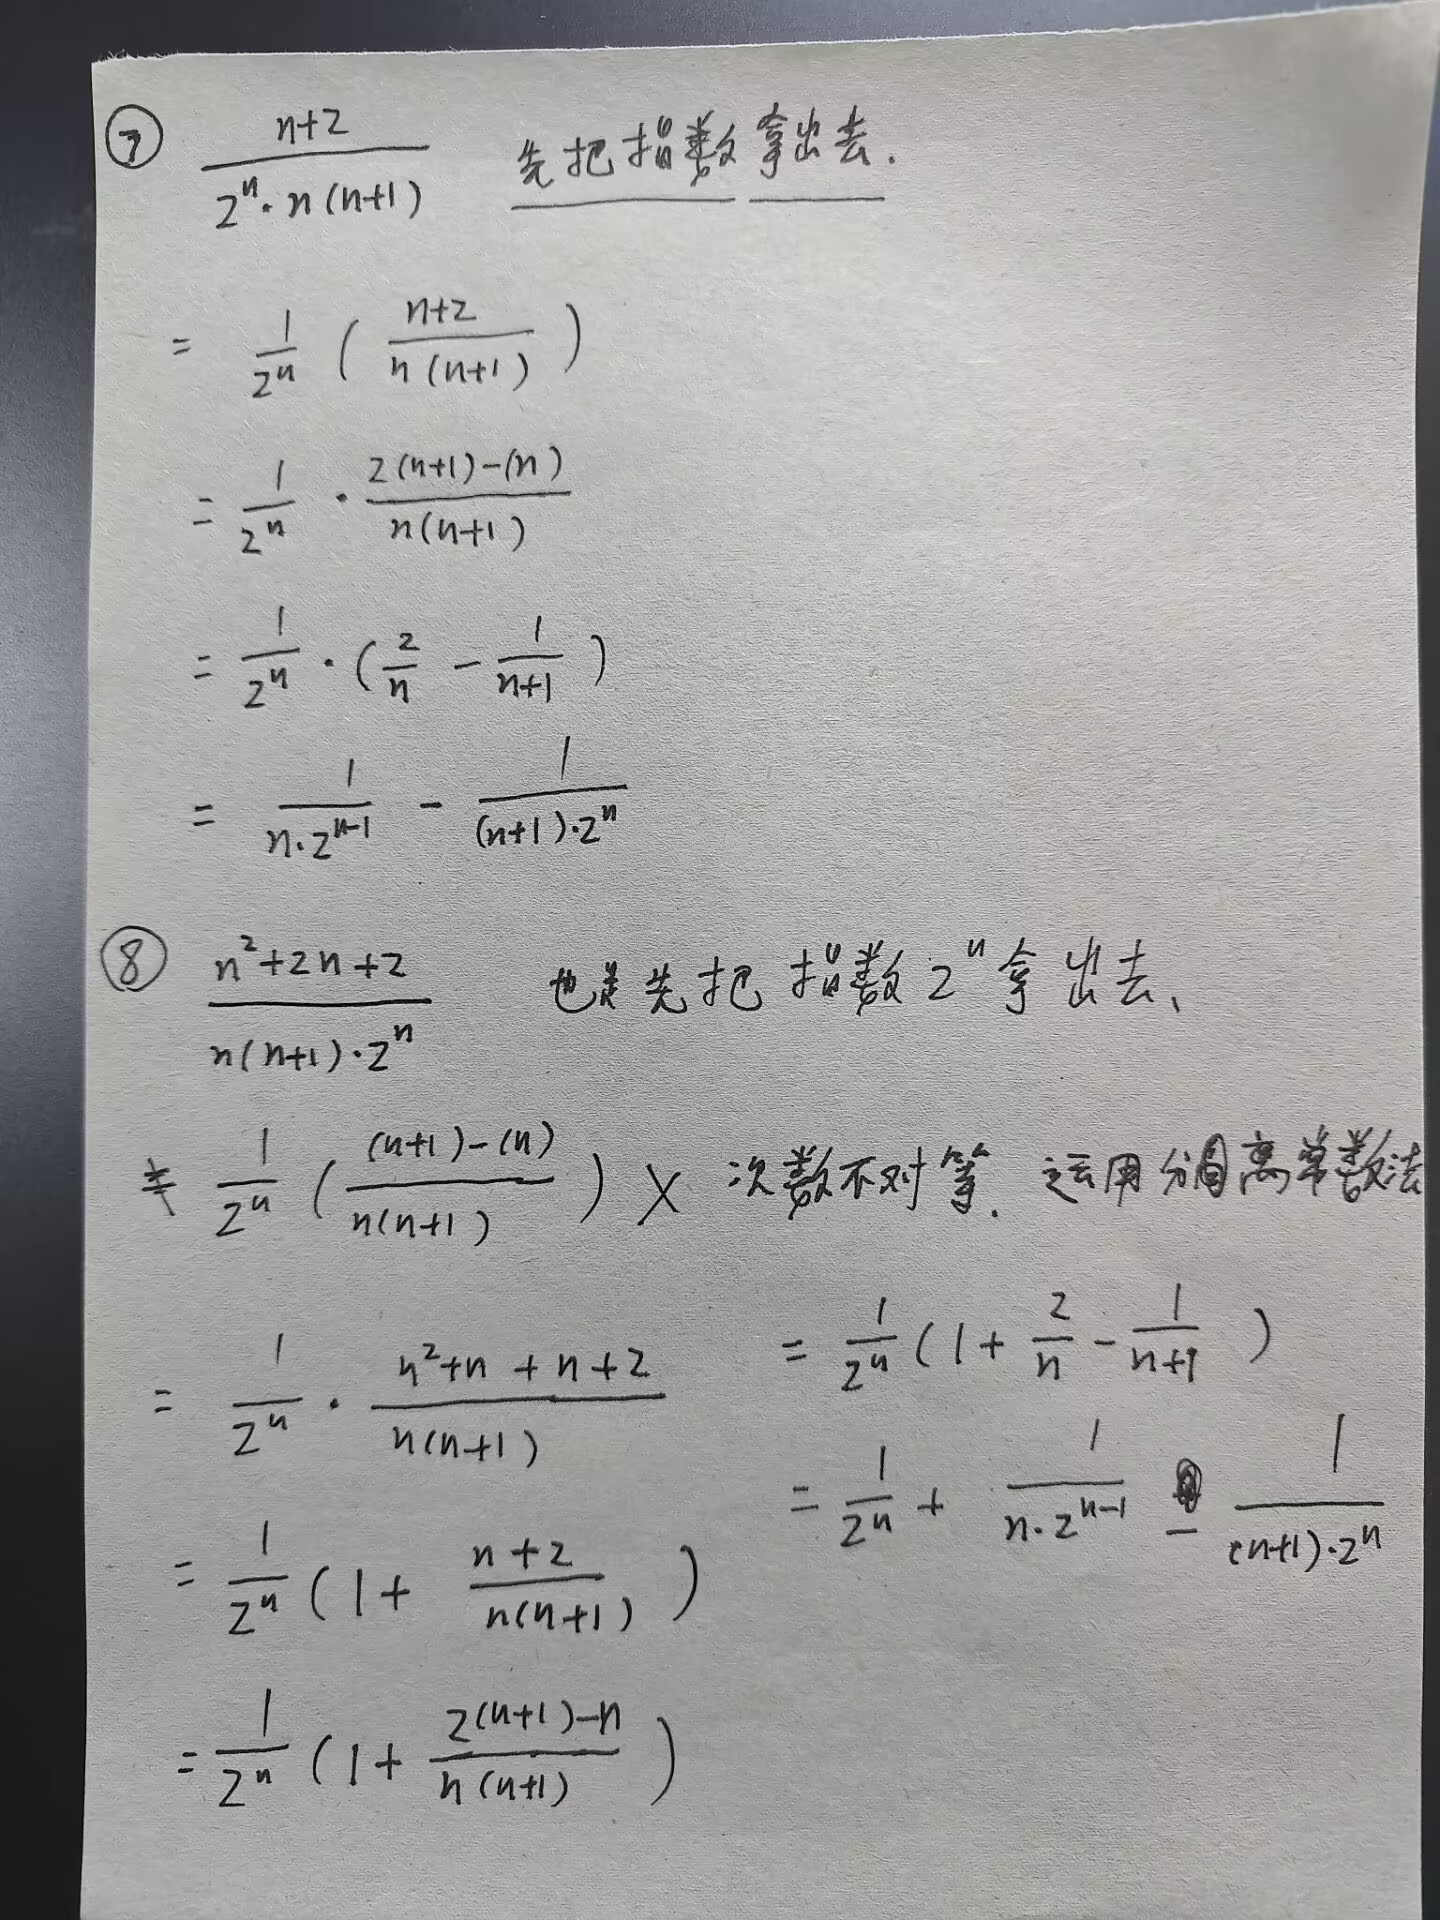 ⑦ \frac{n+2}{2^n·n(n+1)} 先把指数拿出去.
= \frac{1}{2^n}(\frac{n+2}{n(n+1)})
= \frac{1}{2^n}·\frac{2(n+1)-(n)}{n(n+1)}
= \frac{1}{2^n}·(\frac{2}{n}-\frac{1}{n+1})
= \frac{1}{n·2^{n-1}}-\frac{1}{(n+1)·2^n}
⑧ \frac{n^2+2n+2}{n(n+1)·2^n} 也是先把指数2^n拿出去、
≠ \frac{1}{2^n}(\frac{(n+1)-(n)}{n(n+1)}) × 次数不对等. 运用分离常数法
= \frac{1}{2^n}·\frac{n^2+n+n+2}{n(n+1)}
= \frac{1}{2^n}(1+\frac{n+2}{n(n+1)})
= \frac{1}{2^n}(1+\frac{2(n+1)-n}{n(n+1)})
= \frac{1}{2^n}(1+\frac{2}{n}-\frac{1}{n+1})
= \frac{1}{2^n}+\frac{1}{n·2^{n-1}}-\frac{1}{(n+1)·2^n}